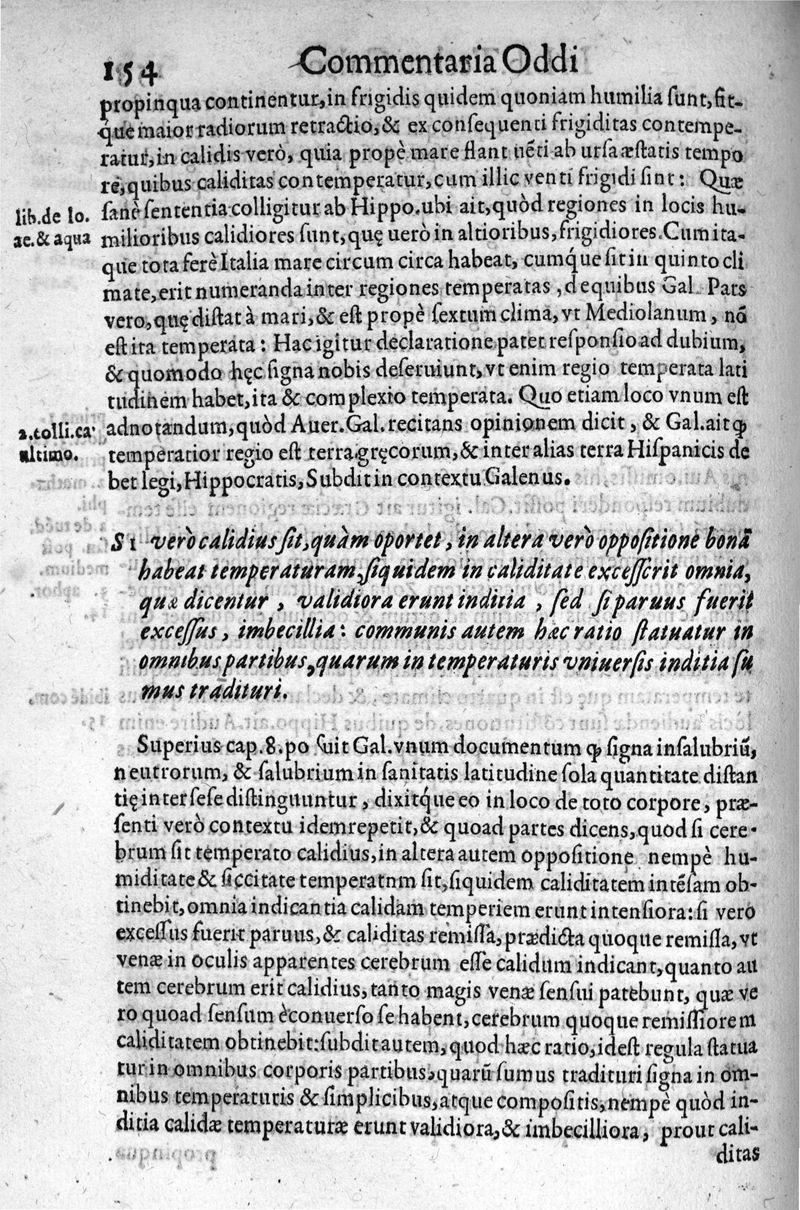 154 Commentaria Oddi
propinqua continentur, in frigidis quidem quoniam humilia ſunt, fit-
que maior radiorum retractio, & ex conſequenti frigiditas contempe-
ratur, in calidis verò, quia propè mare flant uẽti ab urſa æſtatis tempo
re, quibus caliditas contemperatur, cum illic venti frigidi ſint: Quæ
lib. de lo.
ſanè ſententia colligitur ab Hippo. ubi ait, quòd regiones in locis hu-
ae. & aqua
milioribus calidiores ſunt, quę uerò in altioribus, frigidiores. Cum ita-
que tota ferè Italia mare circum circa habeat, cumq́ue ſit in quinto cli
mate, erit numeranda inter regiones temperatas, de quibus Gal. Pars
vero, quę diſtat à mari, & eſt propè ſextum clima, vt Mediolanum, nõ
eſt ita temperata: Hac igitur declaratione patet reſponſio ad dubium,
& quomodo hęc ſigna nobis deſeruiunt, vt enim regio temperata lati
tudinem habet, ita & complexio temperata. Quo etiam loco vnum eſt
2. colli. ca.
adnotandum, quòd Auer. Gal. recitans opinionem dicit, & Gal. ait ꝙ
ultimo.
temperatior regio eſt terra gręcorum, & inter alias terra Hiſpanicis de
bet legi, Hippocratis, Subdit in contextu Galenus.
SI verò calidius ſit, quàm oportet, in altera verò oppoſitione bonã
habeat temperaturam, ſiquidem in caliditate exceſſerit omnia,
quæ dicentur, validiora erunt inditia, ſed ſi paruus fuerit
exceſſus, imbecillia: communis autem hæc ratio ſtatuatur in
omnibus partibus, quarum in temperaturis vniuerſis inditia ſu
mus tradituri.
Superius cap. 8. poſuit Gal. vnum documentum ꝙ ſigna inſalubriũ,
neutrorum, & ſalubrium in ſanitatis latitudine ſola quantitate diſtan
tię inter ſeſe diſtinguuntur, dixitq́ue eo in loco de toto corpore, præ-
ſenti verò contextu idem repetit, & quoad partes dicens, quod ſi cere-
brum ſit temperato calidius, in altera autem oppoſitione nempè hu-
miditate & ſiccitate temperatnm ſit, ſiquidem caliditatem intẽſam ob-
tinebit, omnia indicantia calidam temperiem erunt intenſiora: ſi vero
exceſſus fuerit paruus, & caliditas remiſſa, prædicta quoque remiſſa, vt
venæ in oculis apparentes cerebrum eſſe calidum indicant, quanto au
tem cerebrum erit calidius, tanto magis venæ ſenſui patebunt, quæ ve
ro quoad ſenſum è conuerſo ſe habent, cerebrum quoque remiſſiorem
caliditatem obtinebit: ſubdit autem, quod hæc ratio, ideſt regula ſtatua
tur in omnibus corporis partibus, quarũ ſumus tradituri ſigna in om-
nibus temperaturis & ſimplicibus, atque compoſitis, nempè quòd in-
ditia calidæ temperaturæ erunt validiora, & imbecilliora, prout cali-
ditas